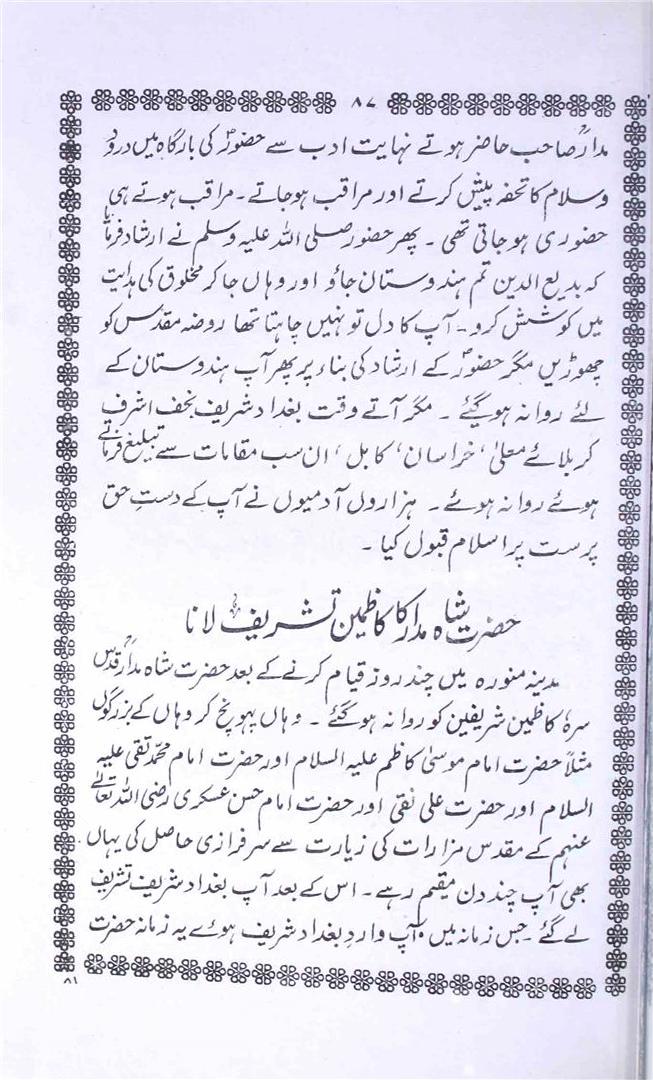 ۸۷
مدارؒ صاحب حاضر ہوتے نہایت ادب سے حضورؐ کی بارگاہ میں درود
وسلام کا تحفہ پیش کرتے اور مراقب ہوجاتے۔ مراقب ہوتے ہی
حضوری ہوجاتی تھی۔ پھر حضور صلی اللہ علیہ وسلم نے ارشاد فرمایا
کہ بدیع الدین تم ہندوستان جاؤ اور وہاں جاکر مخلوق کی ہدایت
میں کوشش کرو۔ آپ کا دل تو نہیں چاہتا تھا روضہ مقدس کو
چھوڑیں مگر حضورؐ کے ارشاد کی بناء پر پھر آپ ہندوستان کے
لئے روانہ ہوگئے۔ مگر آتے وقت بغداد شریف نجف اشرف
کربلائے معلیٰ، خراسان، کابل، ان سب مقامات سے تبلیغ فرماتے
ہوئے روانہ ہوئے۔ ہزاروں آدمیوں نے آپ کے دستِ حق
پرست پر اسلام قبول کیا۔
حضرت شاہ مدارؒ کا کاظمین تشریف لانا
مدینہ منورہ میں چند روز قیام کرنے کے بعد حضرت شاہ مدارؒ قدس
سرہٗ کاظمین شریفین کو روانہ ہوگئے۔ وہاں پہونچ کر وہاں کے بزرگوں
مثلاً حضرت امام موسیٰ کاظم علیہ السلام اور حضرت امام محمد تقی علیہ
السلام اور حضرت علی نقی اور حضرت امام حسن عسکری رضی اللہ تعالیٰ
عنہم کے مقدس مزارات کی زیارت سے سرفرازی حاصل کی یہاں
بھی آپ چند دن مقیم رہے۔ اس کے بعد آپ بغداد شریف تشریف
لے گئے۔ جس زمانہ میں آپ واردِ بغداد شریف ہوئے یہ زمانہ حضرت
۸۱